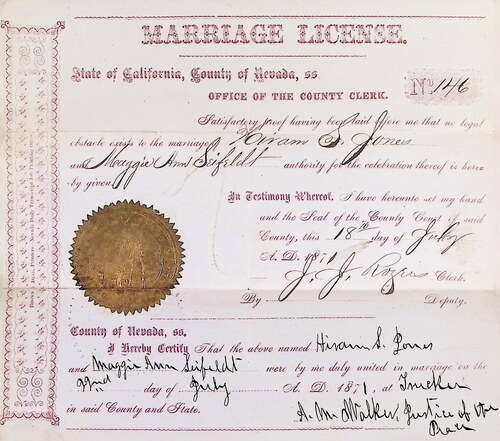 MARRIAGE LICENSE.
State of California, County of Nevada, ss
No 146
OFFICE OF THE COUNTY CLERK.
Satisfactory Proof having been laid before me that no legal
obstacle exists to the marriage of Hiram S. Jones
and Maggie Ann Seifeldt authority for the celebration thereof is here
by given.
In Testimony Whereof, I have hereunto set my hand
and the Seal of the County Court of said
County, this 18th day of July
A. D. 1871
J. J. Rogers Clerk.
By Deputy.
County of Nevada, ss.
I Hereby Certify That the above named Hiram S. Jones
and Maggie Ann Seifeldt were by me duly united in marriage on the
22nd day of July A. D. 1871, at Truckee
in said County and State.
A. M. Walker, Justice of the
Peace